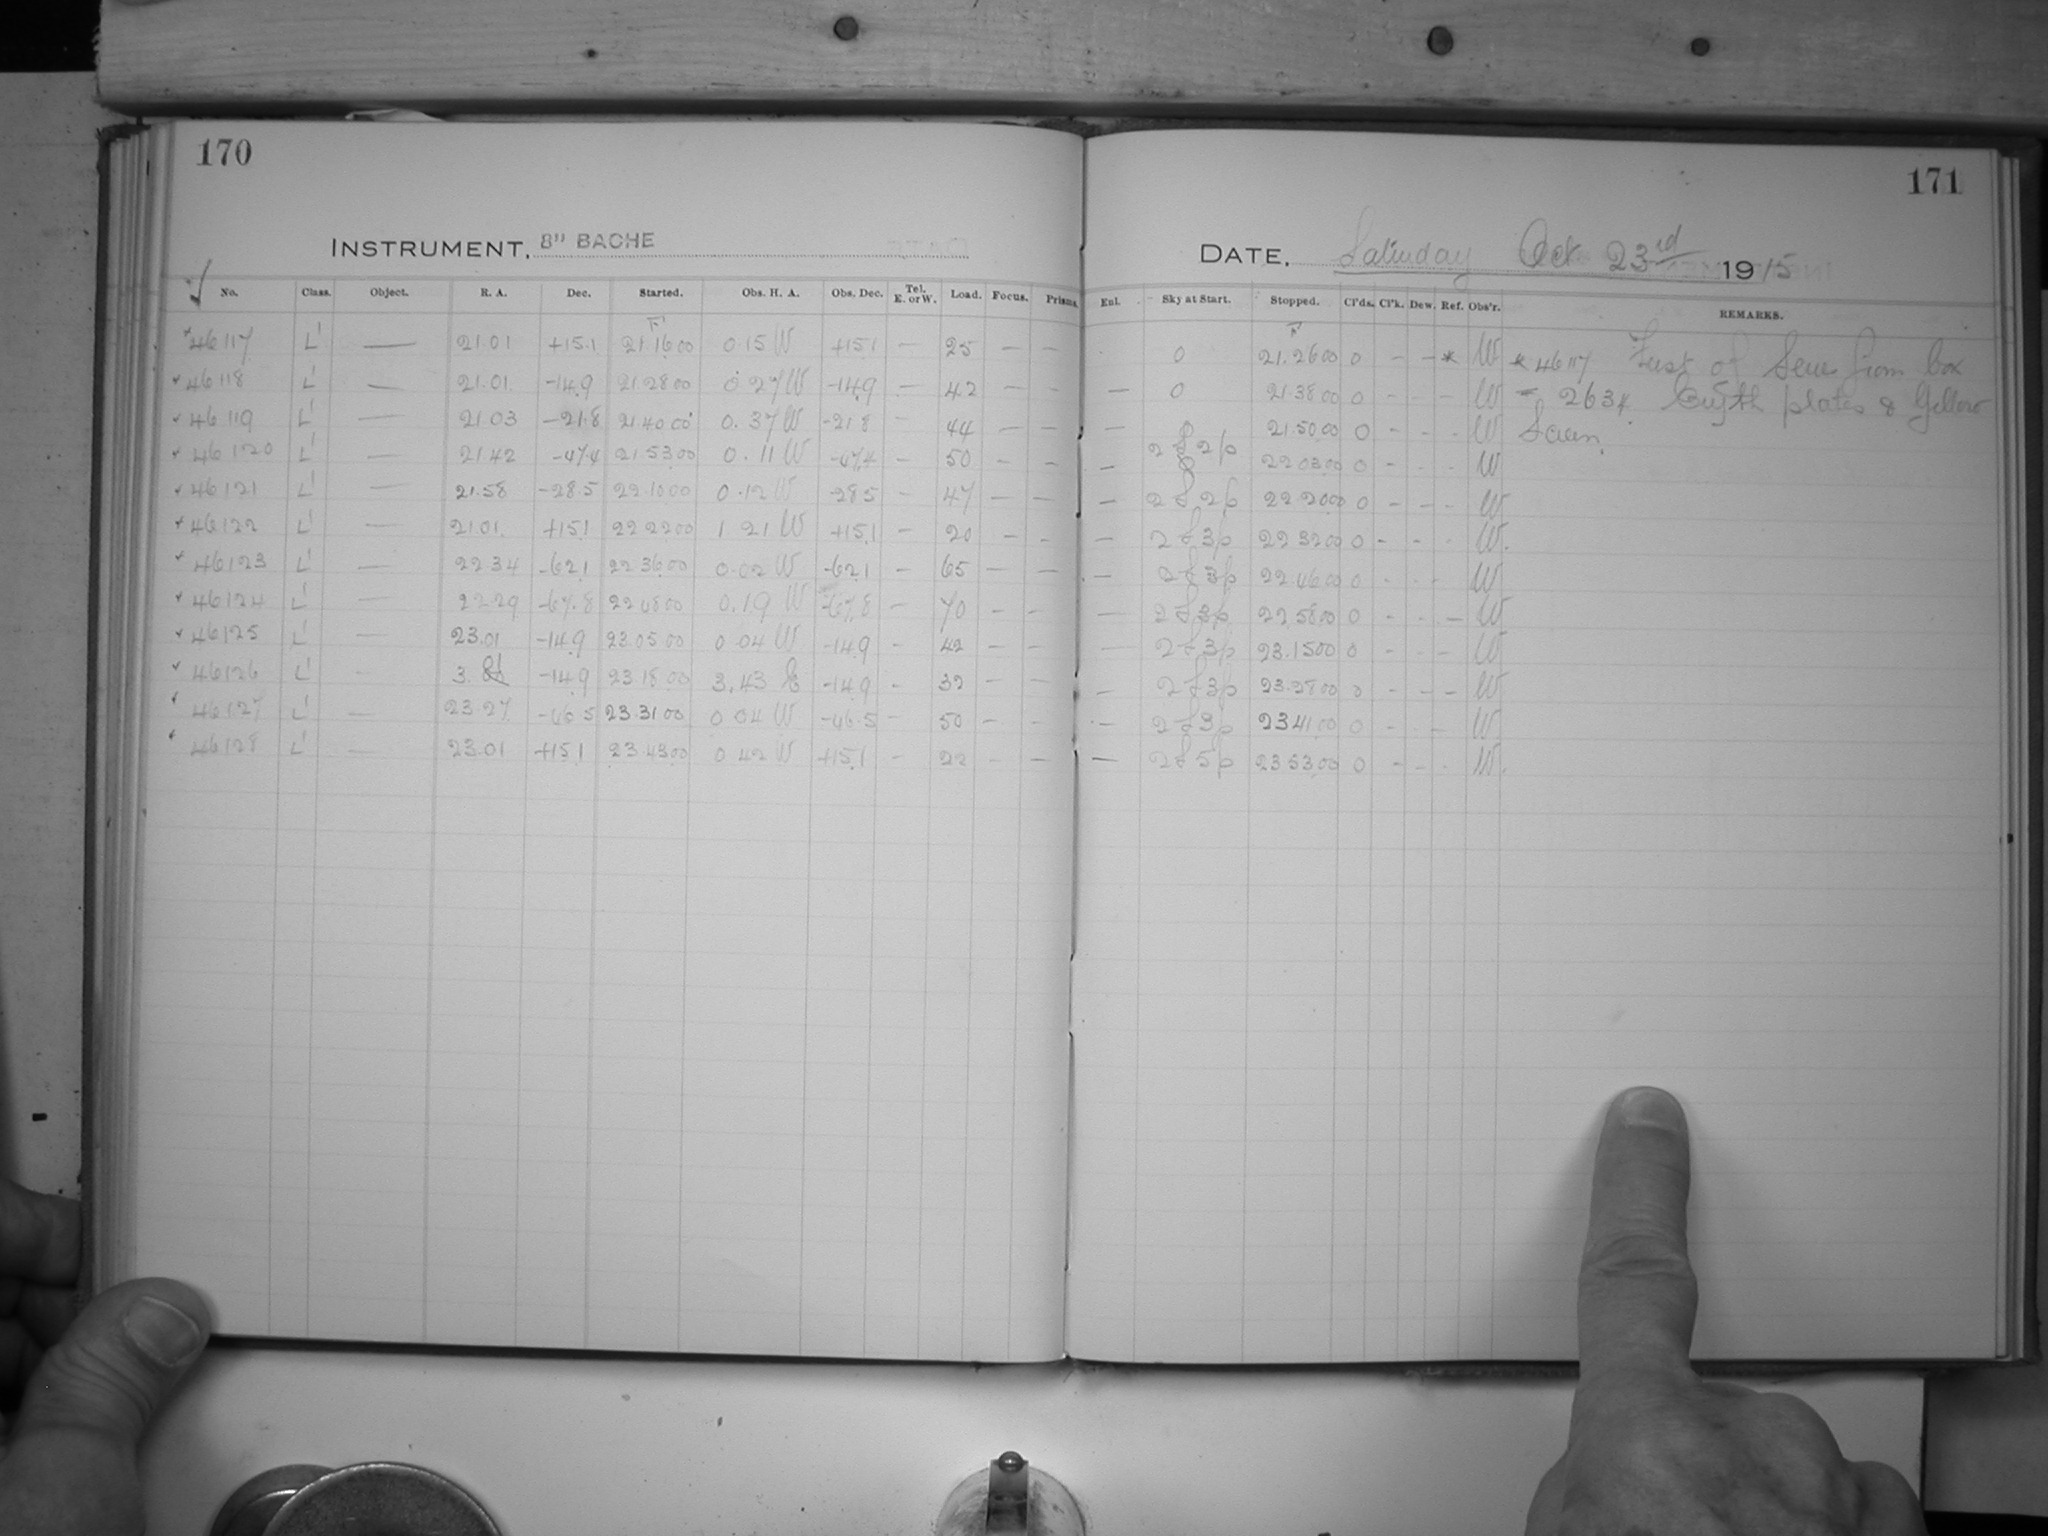 170
171
INSTRUMENT, 8" BACHE
DATE, Saturday Oct 23rd 1915
No. Class. Object. R. A. Dec. Started. Obs. H. A. Obs. Dec. Tel. E. or W. Load. Focus. Prisms. Enl. Sky at Start. Stopped. Cl'ds. Cl'k. Dew. Ref. Obs'r. REMARKS.
46117 L' — 21.01 +15.1 21.16.00 0.15 W +15.1 — 25 — — 0 21.26.00 0 - - * W * 46117 First of from box
46118 L' — 21.01 -14.9 21.28.00 0.27 W -14.9 — 42 — — — 0 21.38.00 0 - - - W = 2634 plates & Yellow
46119 L' — 21.03 -21.8 21.40.00 0.37 W -21.8 — 44 — — — 21.50.00 0 - - - W Screen.
46120 L' — 21.42 -47.4 21.53.00 0.11 W -47.4 — 50 — — — 2 f 2p 22.03.00 0 - - - W
46121 L' — 21.58 -28.5 22.10.00 0.12 W -28.5 — 47 — — — 2 f 2p 22.20.00 0 - - - W
46122 L' — 21.01 +15.1 22.22.00 1.21 W +15.1 — 20 - - — 2 f 3p 22.32.00 0 - - - W.
46123 L' — 22.34 -62.1 22.36.00 0.02 W -62.1 — 65 — — — 2 f 3p 22.46.00 0 - - - W
46124 L' — 22.29 -67.8 22.48.00 0.19 W -67.8 — 70 - - — 2 f 3p 22.58.00 0 - - — W
46125 L' — 23.01 -14.9 23.05.00 0.04 W -14.9 - 42 - - — 2 f 3p 23.15.00 0 - - - W
46126 L' - 3. -14.9 23.18.00 3.43 E -14.9 - 32 - - — 2 f 3p 23.28.00 0 - - - W
46127 L' — 23.27 -46.5 23.31.00 0.04 W -46.5 - 50 - - - 2 f 3p 23.41.00 0 - - - W
46128 L' — 23.01 +15.1 23.43.00 0.42 W +15.1 - 22 - — — 2 f 5p 23.53.00 0 - - - W.